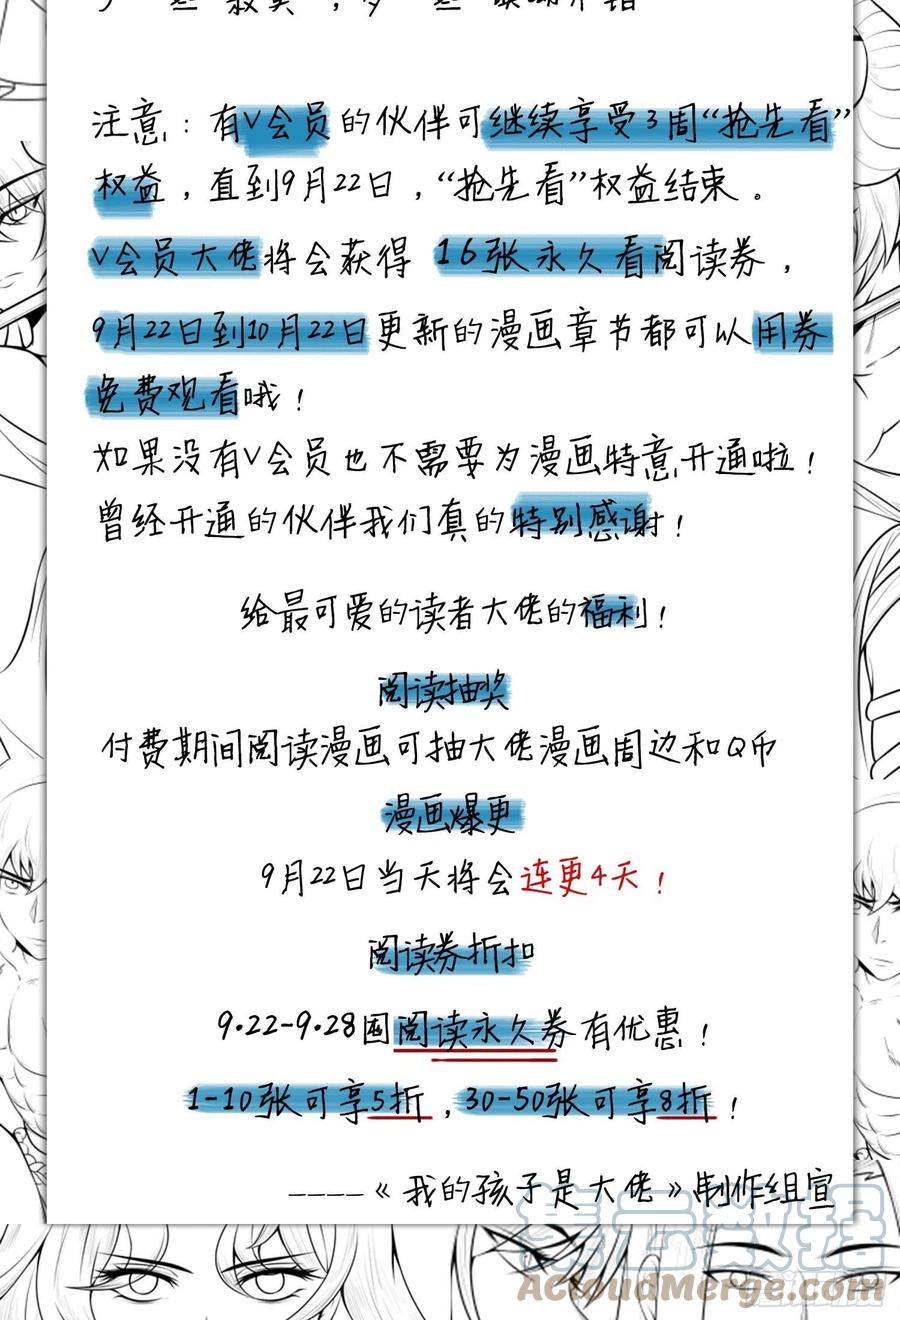 注意：有V会员的伙伴可继续享受3周“抢先看”
权益，直到9月22日，“抢先看”权益结束。
V会员大佬将会获得 16张永久看阅读券，
9月22日到10月22日更新的漫画章节都可以用券
免费观看哦！
如果没有V会员也不需要为漫画特意开通啦！
曾经开通的伙伴我们真的特别感谢！
给最可爱的读者大佬的福利！
阅读抽奖
付费期间阅读漫画可抽大佬漫画周边和Q币
漫画爆更
9月22日当天将会连更4天！
阅读券折扣
9.22-9.28囤阅读永久券有优惠！
1-10张可享5折，30-50张可享8折！
----《我的孩子是大佬》制作组宣
集云数据
AcloudMerge.com